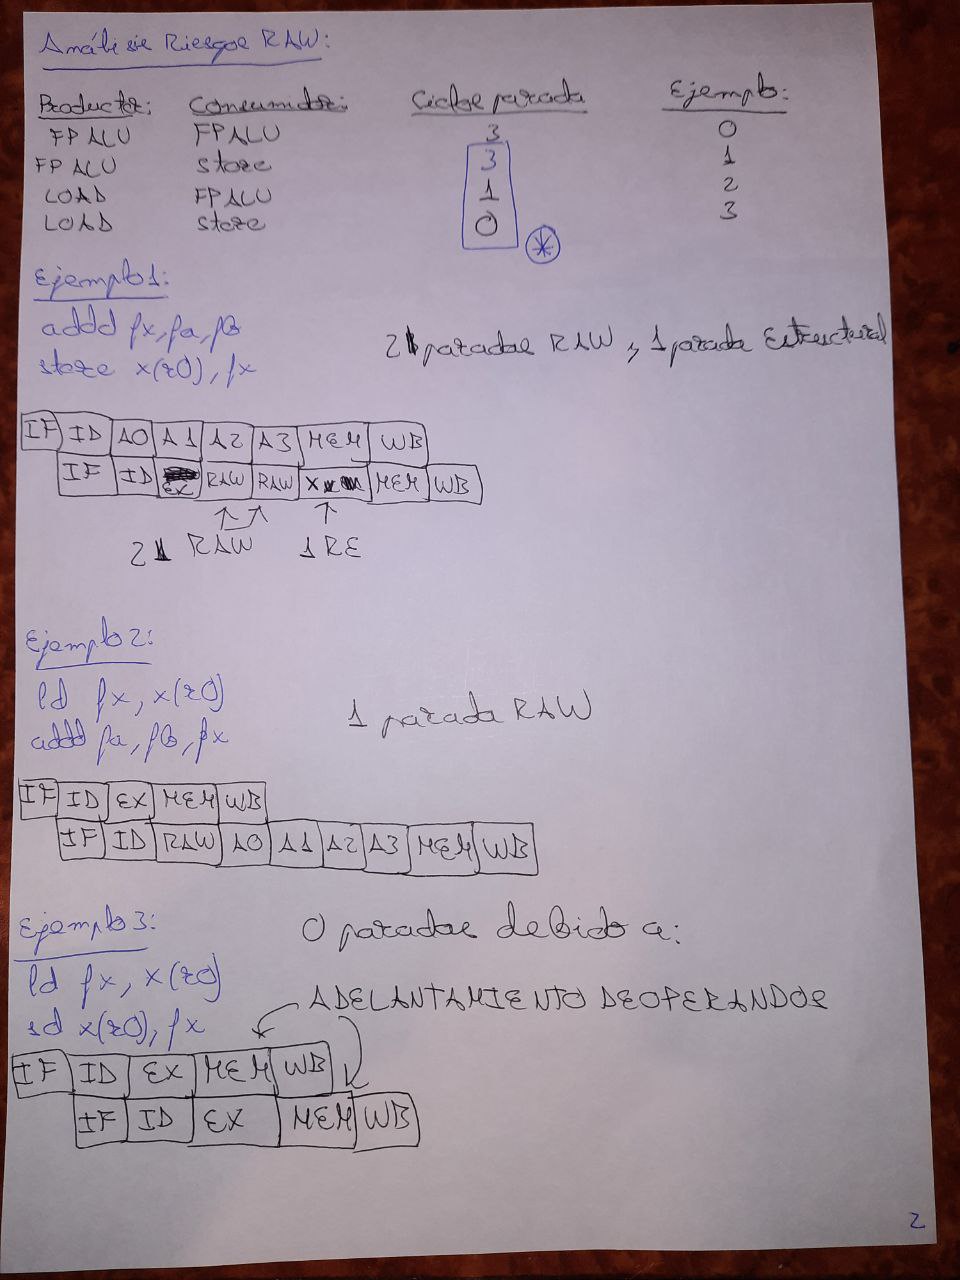 Análisis Riesgos RAW:
Productor: Consumidor: Ciclos parada Ejemplo:
FPALU FPALU 3 0
FPALU store 3 1
LOAD FPALU 1 2
LOAD store 0 3
*
Ejemplo1:
addd fx, fa, fb
store x(r0), fx
2 paradas RAW y 1 parada Estructural
IF ID A0 A1 A2 A3 MEM WB
IF ID EX RAW RAW MEM WB
2 RAW 1 RE
Ejemplo2:
ld fx, x(r0)
addd fa, fb, fx
1 parada RAW
IF ID EX MEM WB
IF ID RAW A0 A1 A2 A3 MEM WB
Ejemplo3:
0 paradas debido a:
ld fx, x(r0)
ADELANTAMIENTO DE OPERANDOS
sd x(r0), fx
IF ID EX MEM WB
IF ID EX MEM WB
2